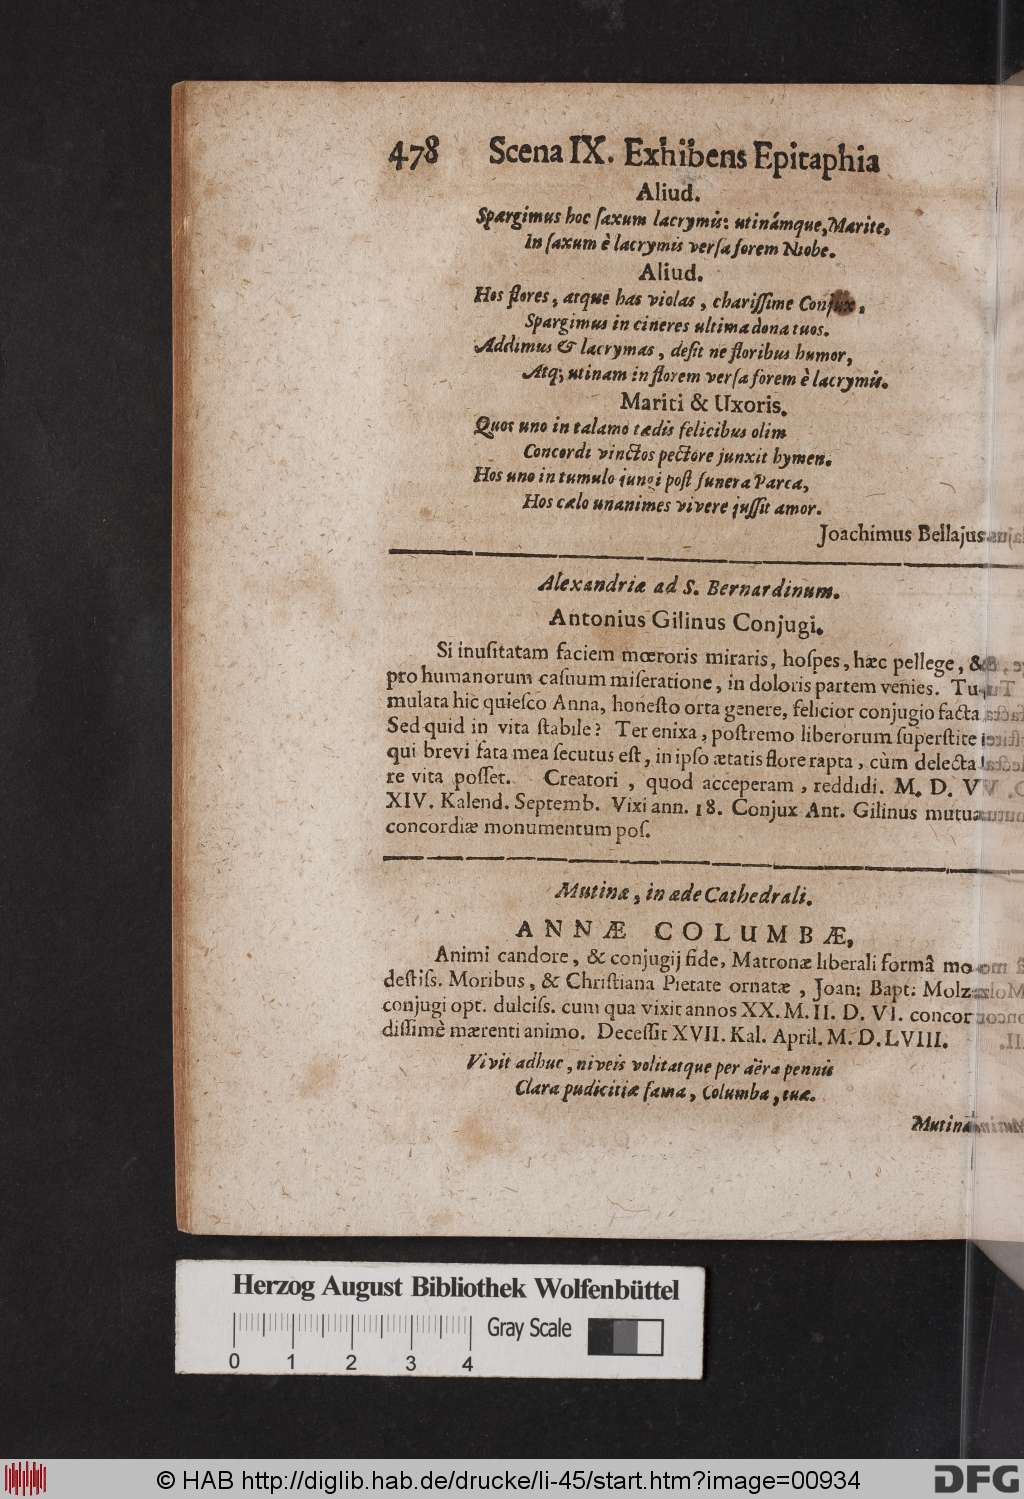 478 Scena IX. Exhibens Epitaphia
Aliud.
Spargimus hoc ſaxum lacrymis: utinámque, Marite,
In ſaxum è lacrymis verſa forem Niobe.
Aliud.
Hos flores, atque has violas, chariſſime Conjux,
Spargimus in cineres ultima dona tuos.
Addimus & lacrymas, deſit ne floribus humor,
Atq; utinam in florem verſa forem è lacrymis.
Mariti & Uxoris.
Quos uno in talamo tædis felicibus olim
Concordi vinctos pectore junxit hymen.
Hos uno in tumulo jungi poſt funera Parca,
Hos cælo unanimes vivere juſſit amor.
Joachimus Bellajus
Alexandriæ ad S. Bernardinum.
Antonius Gilinus Conjugi.
Si inuſitatam faciem mœroris miraris, hoſpes, hæc pellege, &
pro humanorum caſuum miſeratione, in doloris partem venies. Tu-
mulata hic quieſco Anna, honeſto orta genere, felicior conjugio facta
Sed quid in vita ſtabile? Ter enixa, poſtremo liberorum ſuperſtite
qui brevi fata mea ſecutus eſt, in ipſo ætatis flore rapta, cùm delecta
re vita poſſet. Creatori, quod acceperam, reddidi. M. D. V
XIV. Kalend. Septemb. Vixi ann. 18. Conjux Ant. Gilinus mutuæ
concordiæ monumentum poſ.
Mutinæ, in æde Cathedrali.
ANNÆ COLUMBÆ,
Animi candore, & conjugij fide, Matronæ liberali formâ mo
deſtiſs. Moribus, & Chriſtiana Pietate ornatæ, Joan: Bapt: Molza
conjugi opt. dulciſs. cum qua vixit annos XX. M. II. D. VI. concor
diſſimè mærenti animo. Deceſſit XVII. Kal. April. M. D. LVIII.
Vivit adhuc, niveis volitatque per aëra pennis
Clara pudicitiæ fama, Columba, tuæ.
Mutinæ
Herzog August Bibliothek Wolfenbüttel
0 1 2 3 4 Gray Scale
© HAB http://diglib.hab.de/drucke/li-45/start.htm?image=00934
DFG